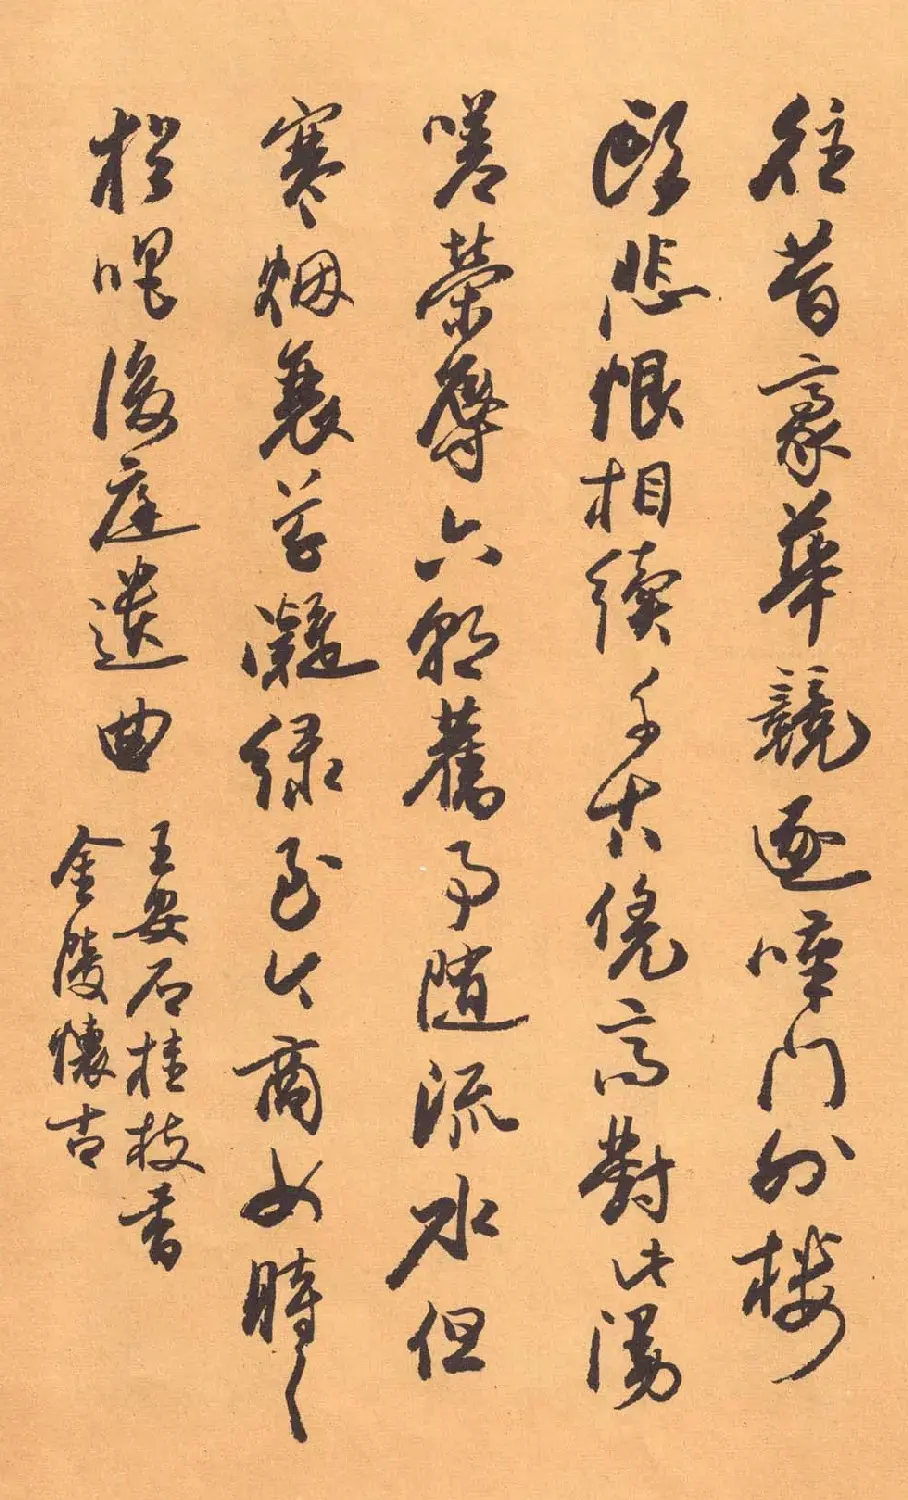 往昔豪華競逐嘆門外楼
頭悲恨相續千古凭高對此漫
嗟榮辱六朝舊事隨流水但
寒烟衰草凝緑至今商女時々
猶唱後庭遺曲
王安石桂枝香
金陵懷古